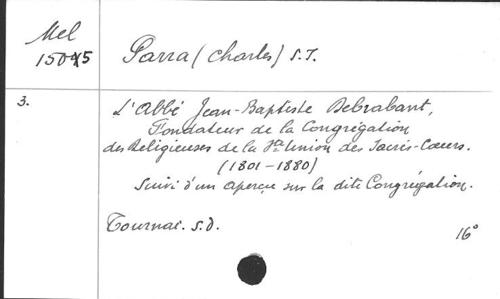 Mel
15045
Parra (Charles) S.J.
3.
L'Abbé Jean-Baptiste Debrabant,
Fondateur de la Congrégation
des Religieuses de la Ste Union des Sacrés-Cœurs.
(1801-1880)
Suivi d'un aperçu sur la dite Congrégation.
Tournai. s.d.
16°